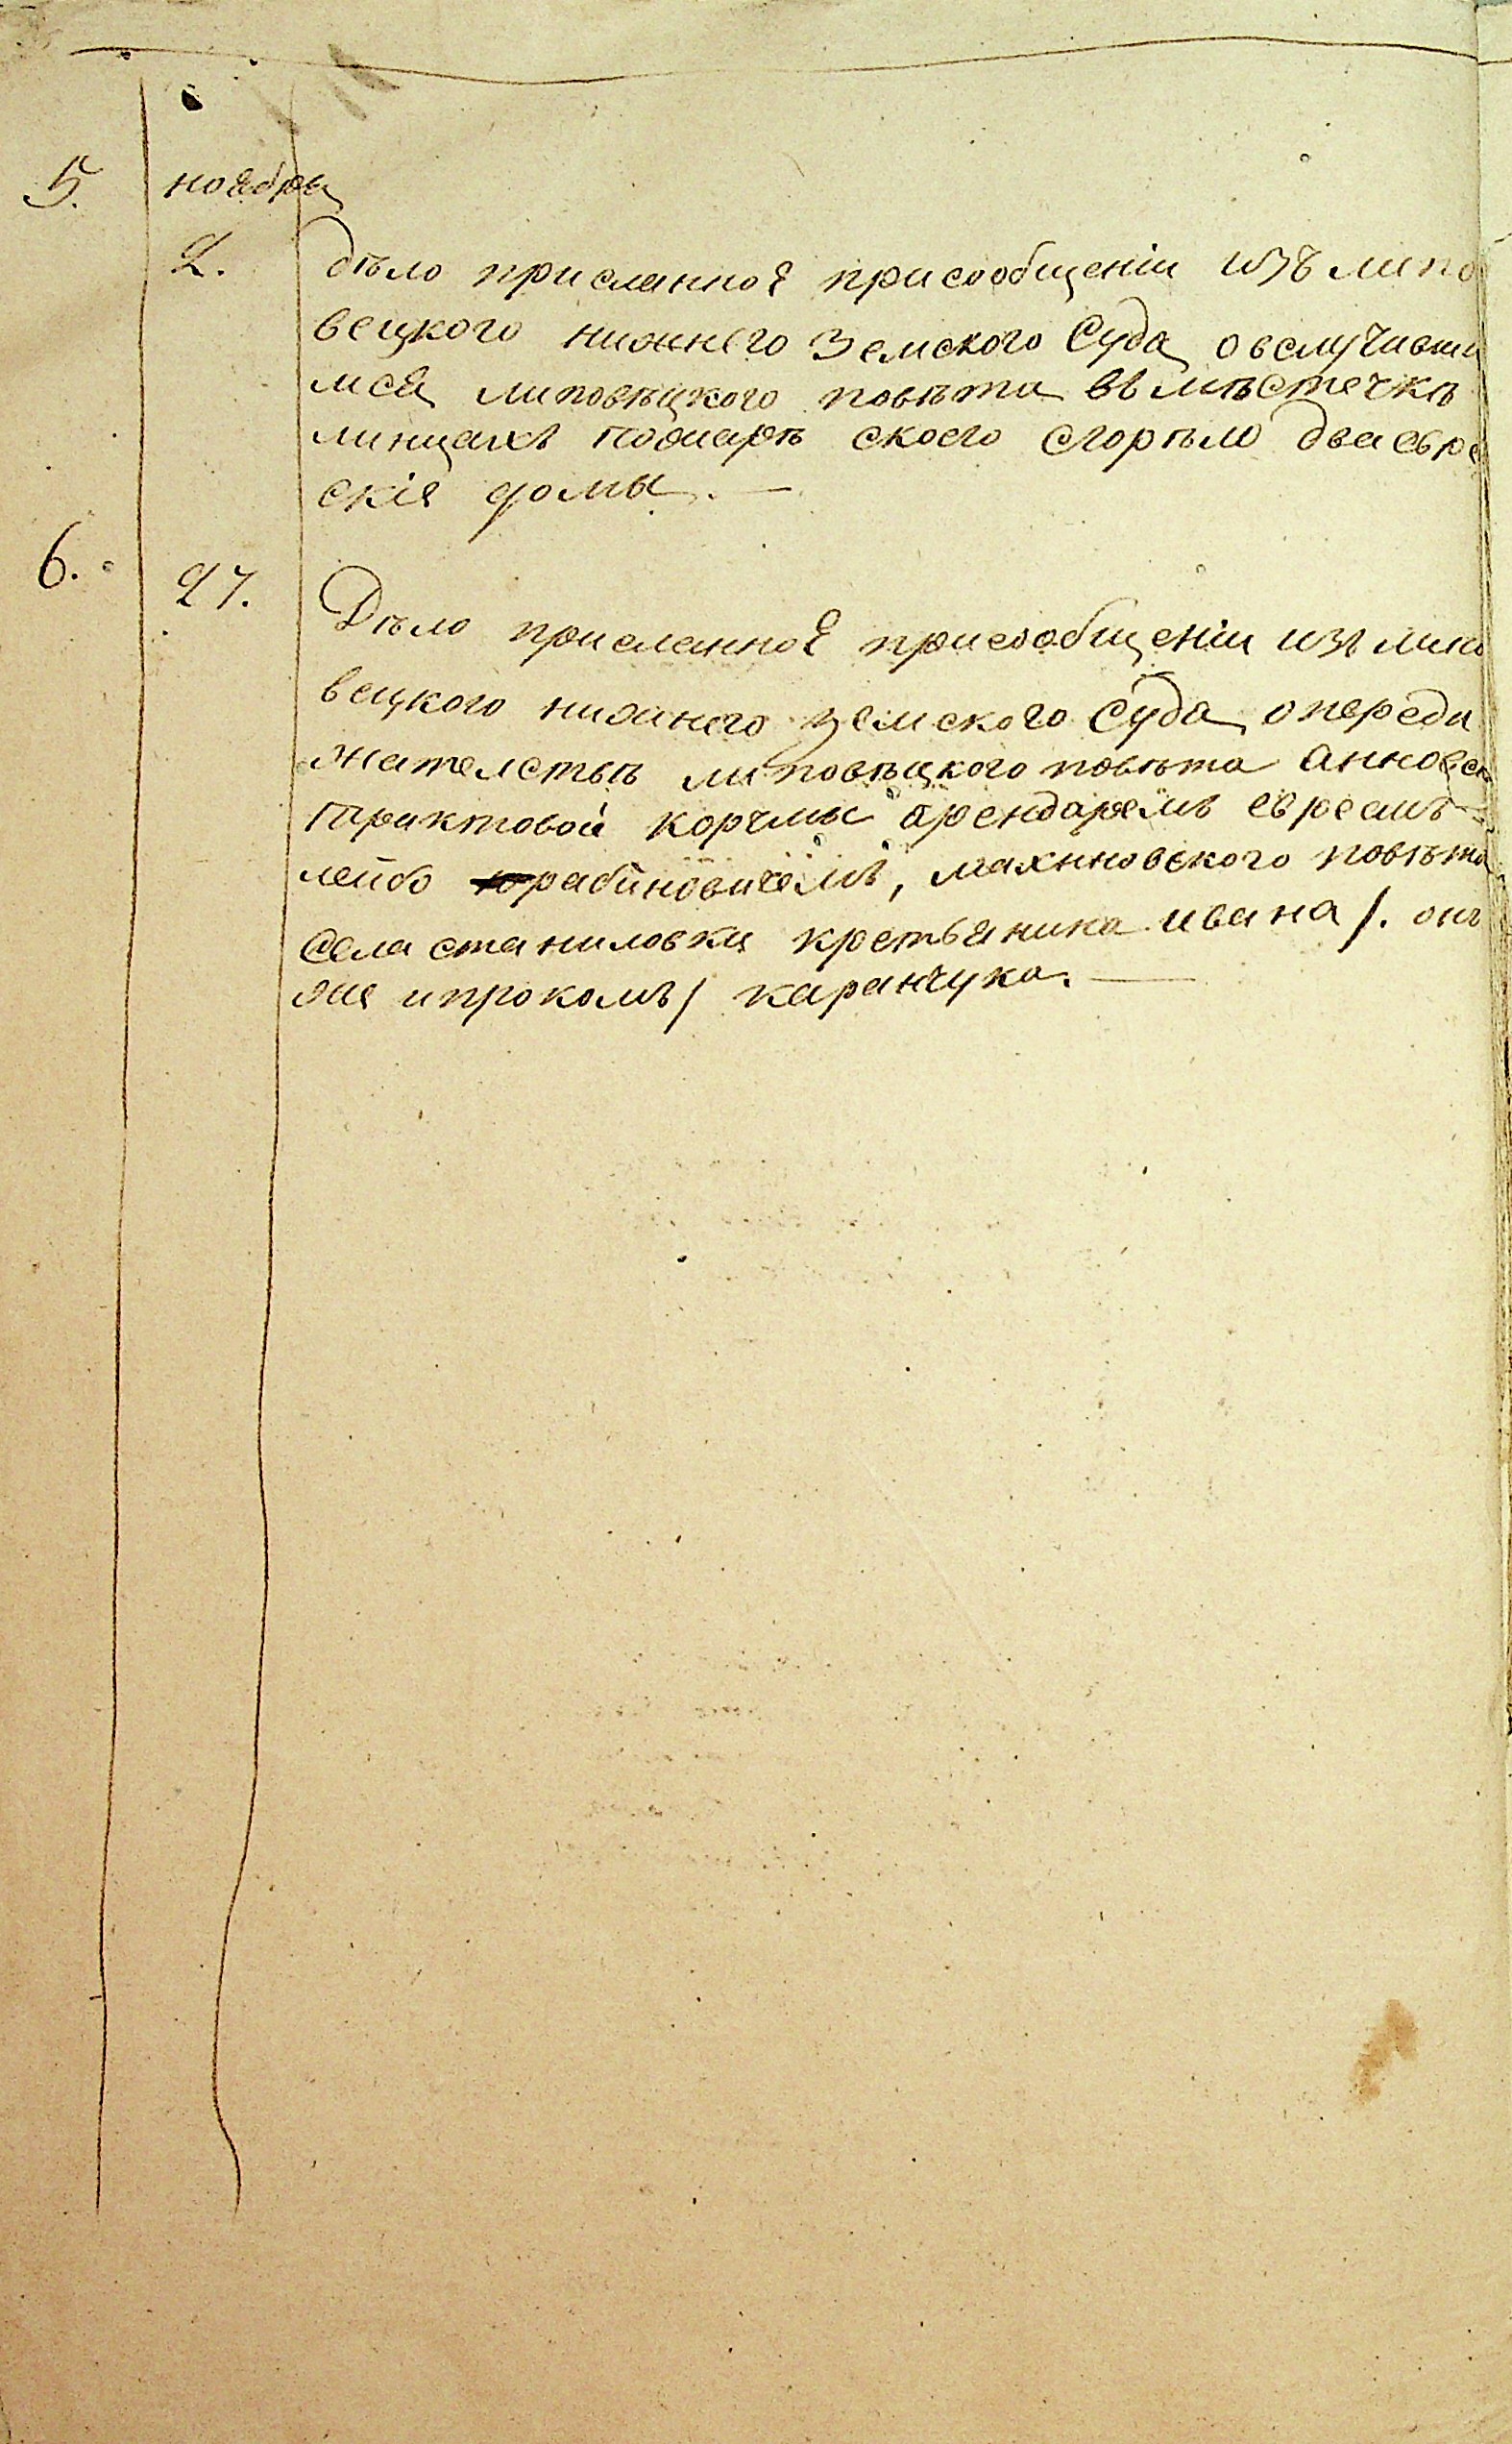 5. ноября
2. дѣло присланное присообщеніи изъ липо
вецкого нижнего Земского Суда, о вслучивши
мся липовѣцкого повѣта вв мѣстечкѣ
линцахъ пожарѣ скоего сгорѣло два евре
скіе домы. —
6. 27. Дѣло присланное присообщеніи изъ липо
вецкого нижнего земского Суда, о переди
жателствѣ липовѣцкого повѣта анновск
трактовой корчмы арендаремъ евреемъ
лейбо рабиновичемъ, махновского повѣта
села станиловки крестьянина ивана /. онъ
же ипрокомъ / каранчука. —